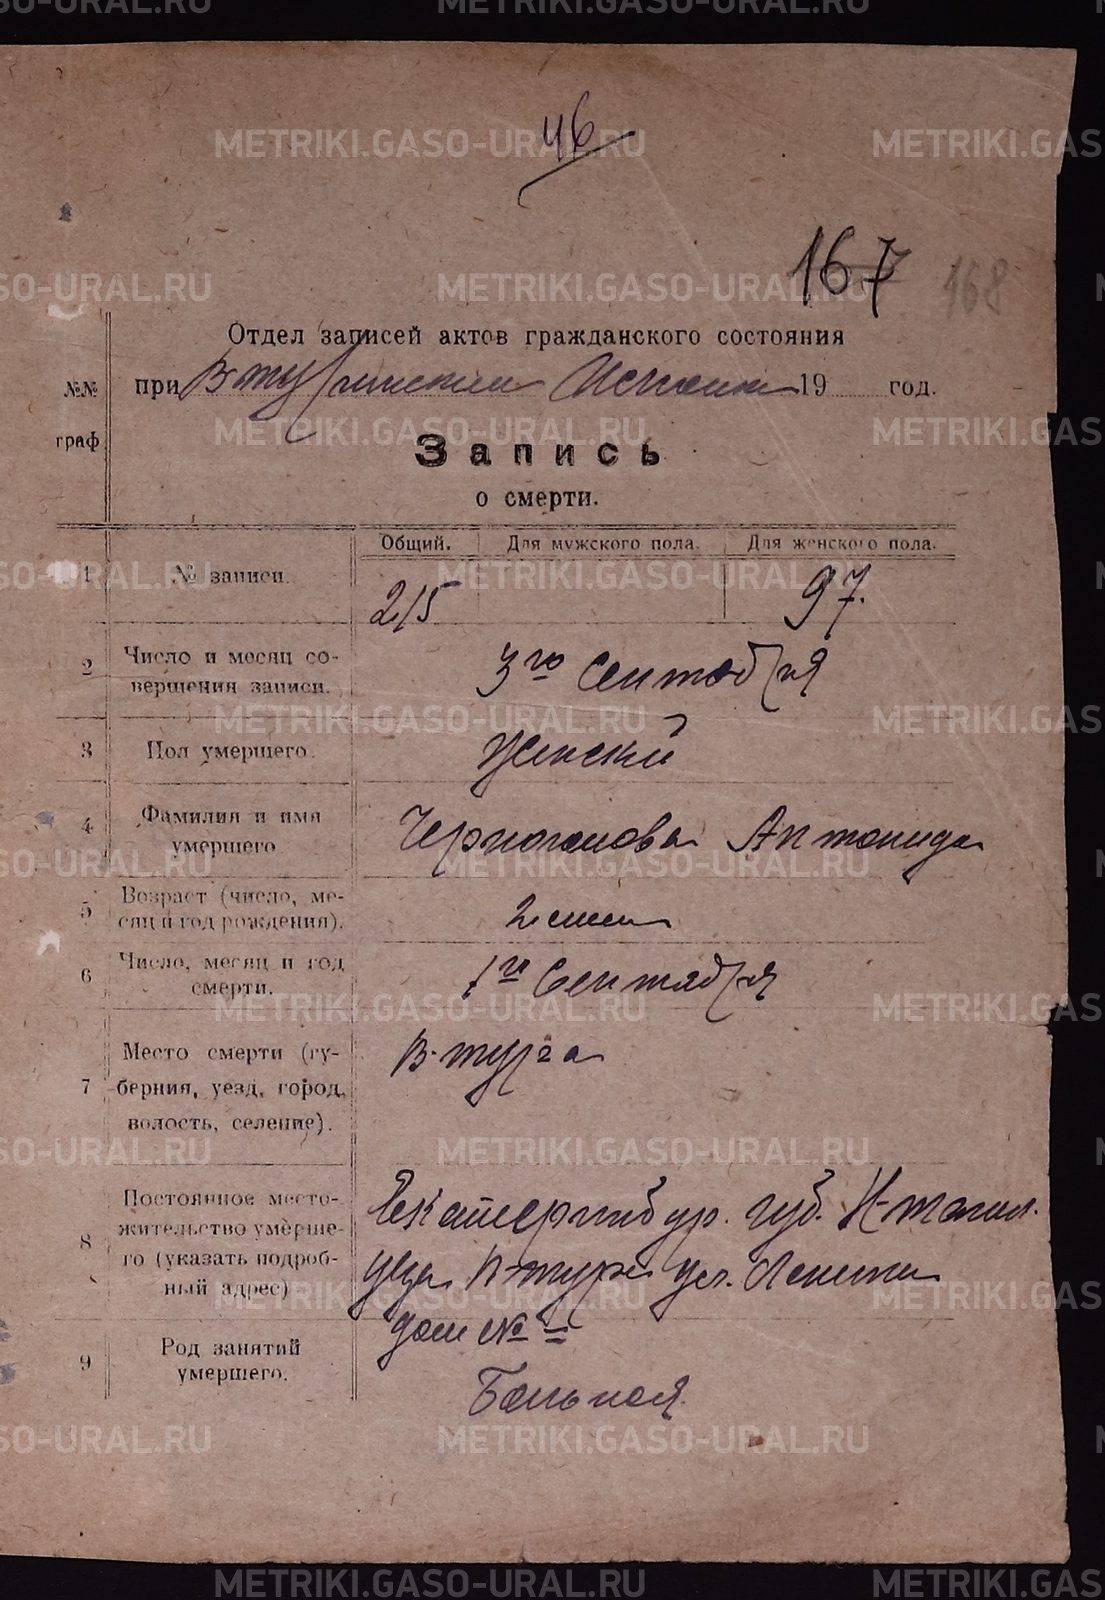 46
167 168
Отдел записей актов гражданского состояния
при В-туринском Исполк 19 год.
№№
граф.
Запись
о смерти.
Общий. Для мужского пола. Для женского пола.
1 № записи. 215 97.
2 Число и месяц со-
вершения записи. 3го Сентября
3 Пол умершего. Женский
4 Фамилия и имя
умершего Черноголова Антонида
5 Возраст (число, ме-
сяц и год рождения). 2
6 Число, месяц и год
смерти. 1го Сентября
7 Место смерти (гу-
берния, уезд, город,
волость, селение). В-тура
8 Постоянное место-
жительство умерше-
го (указать подроб-
ный адрес)
Екатеринбур. губ. Н-тагил.
уезда В-тура ул. Ленина
дом № =
9 Род занятий
умершего.
Больная
METRIKI.GASO-URAL.RU